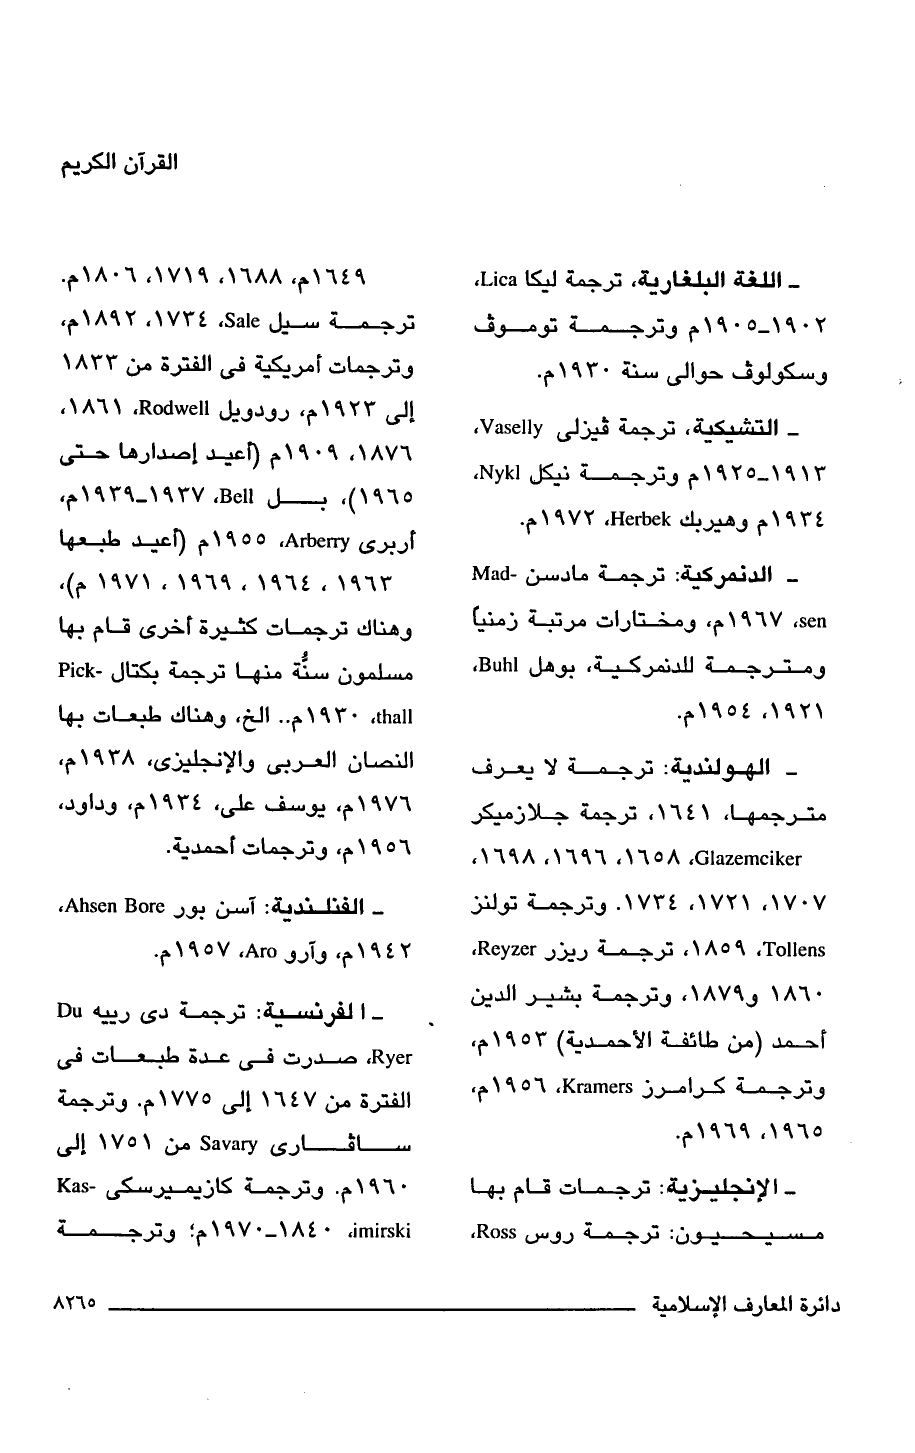 القرآن الكريم
ـ اللغة البلغارية، ترجمة ليكا Lica،
١٩٠٢ـ١٩٠٥م وترجمة توموڤ
وسكولوڤ حوالى سنة ١٩٣٠م.
ـ التشيكية، ترجمة ڤيزلى Vaselly،
١٩١٣ـ١٩٢٥م وترجمة نيكل Nykl،
١٩٣٤م وهيربك Herbek، ١٩٧٢م.
ـ الدنمركية: ترجمة مادسن Mad-
sen، ١٩٦٧م، ومختارات مرتبة زمنياً
ومترجمة للدنمركية، بوهل Buhl،
١٩٢١، ١٩٥٤م.
ـ الهولندية: ترجمة لا يعرف
مترجمها، ١٦٤١، ترجمة جلازميكر
Glazemciker، ١٦٥٨، ١٦٩٦، ١٦٩٨،
١٧٠٧، ١٧٢١، ١٧٣٤. وترجمة تولنز
Tollens، ١٨٥٩، ترجمة ريزر Reyzer،
١٨٦٠ و١٨٧٩، وترجمة بشير الدين
أحمد (من طائفة الأحمدية) ١٩٥٣م،
وترجمة كرامرز Kramers، ١٩٥٦م،
١٩٦٥، ١٩٦٩م.
ـ الإنجليزية: ترجمات قام بها
مسيحيون: ترجمة روس Ross،
١٦٤٩م، ١٦٨٨، ١٧١٩، ١٨٠٦م.
ترجمة سيل Sale، ١٧٣٤، ١٨٩٢م،
وترجمات أمريكية فى الفترة من ١٨٣٣
إلى ١٩٢٣م، رودويل Rodwell، ١٨٦١،
١٨٧٦، ١٩٠٩م (أعيد إصدارها حتى
١٩٦٥)، بل Bell، ١٩٣٧ـ١٩٣٩م،
أربرى Arberry، ١٩٥٥م (أعيد طبعها
١٩٦٣ ، ١٩٦٤ ، ١٩٦٩ ، ١٩٧١ م)،
وهناك ترجمات كثيرة أخرى قام بها
مسلمون سنُّة منها ترجمة بكتال Pick-
thall، ١٩٣٠م.. الخ، وهناك طبعات بها
النصان العربى والإنجليزى، ١٩٣٨م،
١٩٧٦م، يوسف على، ١٩٣٤م، وداود،
١٩٥٦م، وترجمات أحمدية.
ـ الفنلندية: آسن بور Ahsen Bore،
١٩٤٢م، وآرو Aro، ١٩٥٧م.
ـ الفرنسية: ترجمة دى رييه Du
Ryer، صدرت فى عدة طبعات فى
الفترة من ١٦٤٧ إلى ١٧٧٥م. وترجمة
ساڤارى Savary من ١٧٥١ إلى
١٩٦٠م. وترجمة كازيميرسكى Kas-
imirski، ١٨٤٠ـ١٩٧٠م؛ وترجمة
دائرة المعارف الإسلامية ٨٢٦٥